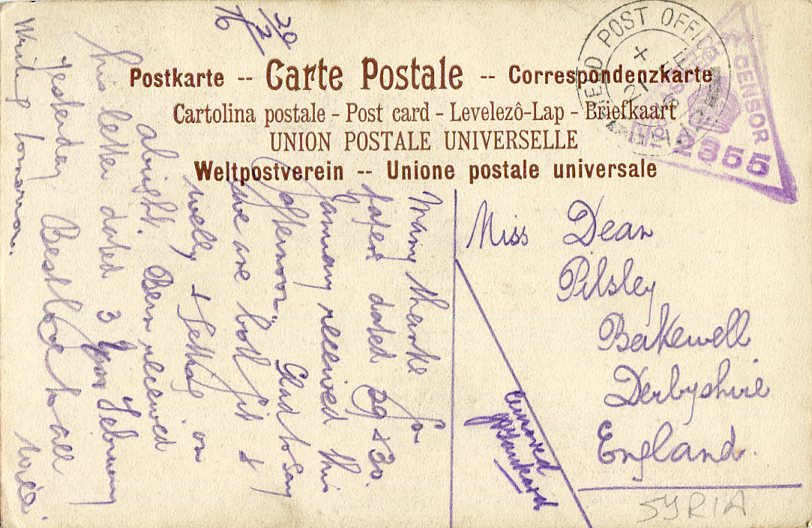 20/2/16
Postkarte -- Carte Postale -- Correspondenzkarte
Cartolina postale - Post card - Levelezô-Lap - Briefkaart
UNION POSTALE UNIVERSELLE
Weltpostverein -- Unione postale universale
Many thanks for
papers dated 29 & 30
January received this
afternoon. Glad to say
we are both fit &
well, & getting on
alright. Bern received
his letter dated 3 February
yesterday Best love to all
Writing tomorrow.
Miss Dean
Pilsley
Bakewell
Derbyshire
England.
Censored
SYRIA
POST OFFICE
CENSOR
2355